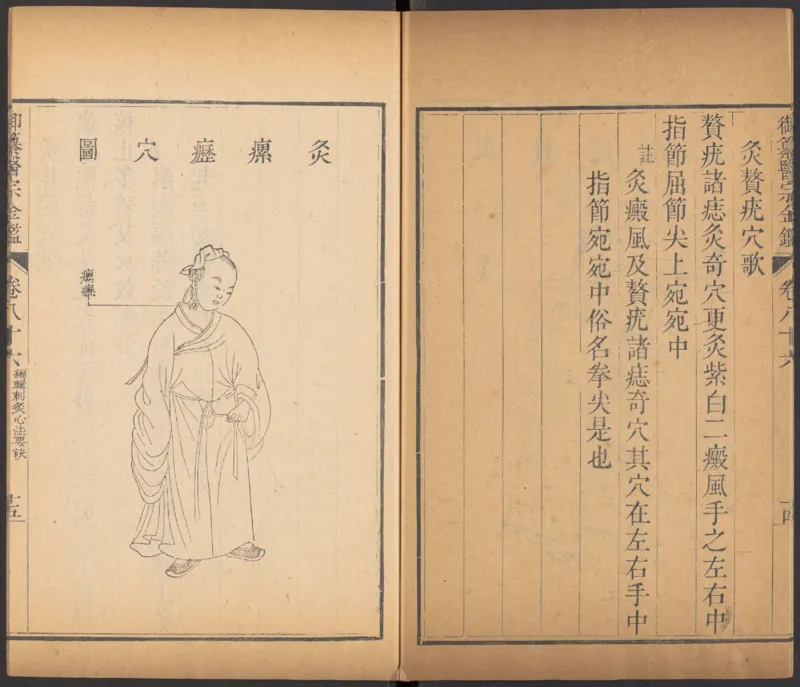 御纂醫宗金鑑
卷八十六
灸贅疣穴歌
贅疣諸痣灸奇穴更灸紫白二癜風手之左右中
指節屈節尖上宛宛中
註
灸癜風及贅疣諸痣奇穴其穴在左右手中
指節宛宛中俗名拳尖是也
灸瘰癧穴圖
瘰癧
御纂醫宗金鑑
卷八十六
編輯刺灸心法要訣
十五